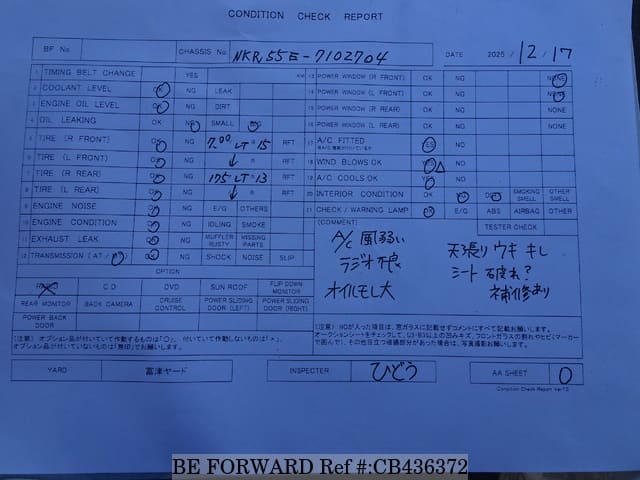 CONDITION CHECK REPORT
BF No
CHASSIS No NKR55E-7102704
DATE 2025 / 12 / 17
1 TIMING BELT CHANGE YES KM
2 COOLANT LEVEL OK NG LEAK
3 ENGINE OIL LEVEL OK NG DIRT
4 OIL LEAKING OK NG SMALL BIG
5 TIRE (R FRONT) OK NG 7.00 LT 15 RFT
6 TIRE (L FRONT) OK NG ↓ RFT
7 TIRE (R REAR) OK NG 175 LT 13 RFT
8 TIRE (L REAR) OK NG ↓ RFT
9 ENGINE NOISE OK NG E/G OTHERS
10 ENGINE CONDITION OK NG IDLING SMOKE
11 EXHAUST LEAK OK NG MUFFLER RUSTY MISSING PARTS
12 TRANSMISSION (AT / MT) OK NG SHOCK NOISE SLIP
OPTION
RADIO CD DVD SUN ROOF FLIP DOWN MONITOR
REAR MONITOR BACK CAMERA CRUISE CONTROL POWER SLIDING DOOR (LEFT) POWER SLIDING DOOR (RIGHT)
POWER BACK DOOR
(注意) オプション品が付いていて作動するものは「○」、付いていて作動しないものは「×」、
オプション品が付いていないものは「無印」でお願いします。
13 POWER WINDOW (R FRONT) OK NG NONE
14 POWER WINDOW (L FRONT) OK NG NONE
15 POWER WINDOW (R REAR) OK NG NONE
16 POWER WINDOW (L REAR) OK NG NONE
17 A/C FITTED YES NO
18 WIND BLOWS OK YES △ NO
19 A/C COOLS OK YES NO
20 INTERIOR CONDITION OK SMOKING SMELL OTHER SMELL
21 CHECK / WARNING LAMP OK E/G ABS AIRBAG OTHER
(COMMENT) TESTER CHECK
A/C 風弱い
ラジオ不良
オイルモレ大
天張りウキ キレ
シート破れ?
補修あり
(注意) NGが入った項目は、窓ガラスに記載せずコメントにすべて記載お願いします。
YARD 富津ヤード
INSPECTER ひどう
AA SHEET 0
Condition Check Report ver.13
BE FORWARD Ref #:CB436372